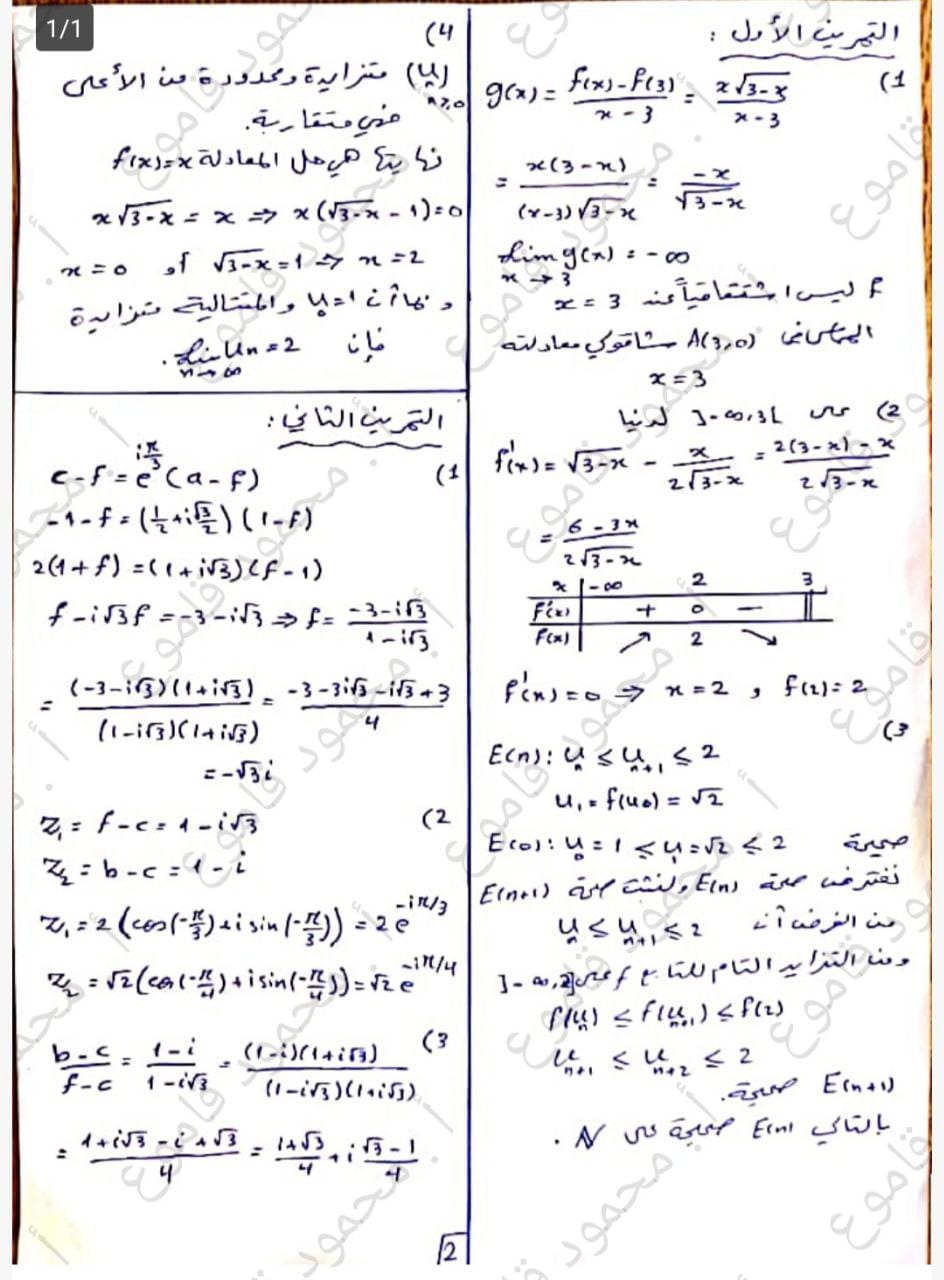 1/1
التمرين الأول :
(1
g(x) = f(x) - f(3) / x - 3 = x√3-x / x - 3
= x(3-x) / (x-3)√3-x = -x / √3-x
lim g(x) = -∞
x → 3
f ليس اشتقاقياً عند x = 3
A(3,0) شاقولي معادلته
x = 3
(2 على ]-∞,3[ لدينا
f'(x) = √3-x - x / 2√3-x = 2(3-x) - x / 2√3-x
= 6 - 3x / 2√3-x
x | -∞ 2 3
f'(x) | + 0 - ||
f(x) | ↗ 2 ↘
f'(x) = 0 ⇒ x = 2 , f(2) = 2
(3
E(n): u_n ≤ u_{n+1} ≤ 2
u_1 = f(u_0) = √2
E(0): u_0 = 1 ≤ u_1 = √2 ≤ 2 صحيحة
نفترض صحة E(n) ولنثبت صحة E(n+1)
من الفرض أن u_n ≤ u_{n+1} ≤ 2
ومن التزايد التام للتابع f على ]-∞,2]
f(u_n) ≤ f(u_{n+1}) ≤ f(2)
u_{n+1} ≤ u_{n+2} ≤ 2
E(n+1) صحيحة.
بالتالي E(n) صحيحة على N .
(4
(u_n)_{n≥0} متزايدة ومحدودة من الأعلى
فهي متقاربة.
نهايتها هي حل المعادلة f(x)=x
x√3-x = x ⇒ x(√3-x - 1) = 0
x = 0 أو √3-x = 1 ⇒ x = 2
وبما أن u_0 = 1 والمتتالية متزايدة
فإن lim u_n = 2 .
n→∞
التمرين الثاني :
(1
c - f = e^{iπ/3} (a - f)
-1 - f = (1/2 + i√3/2) (1 - f)
2(1+f) = (1+i√3)(f-1)
f - i√3 f = -3 - i√3 ⇒ f = -3-i√3 / 1-i√3
= (-3-i√3)(1+i√3) / (1-i√3)(1+i√3) = -3-3i√3-i√3+3 / 4
= -√3 i
(2
z_1 = f - c = 1 - i√3
z_2 = b - c = 1 - i
z_1 = 2(cos(-π/3) + i sin(-π/3)) = 2 e^{-iπ/3}
z_2 = √2(cos(-π/4) + i sin(-π/4)) = √2 e^{-iπ/4}
(3
b-c / f-c = 1-i / 1-i√3 = (1-i)(1+i√3) / (1-i√3)(1+i√3)
= 1+i√3-i+√3 / 4 = 1+√3 / 4 + i √3-1 / 4
2
أ. محمود قاموع